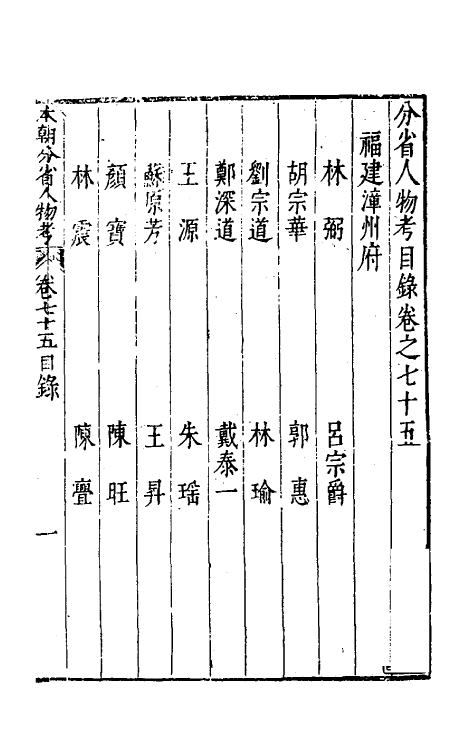 分省人物考目錄卷之七十五
福建漳州府
林弼　呂宗爵
胡宗華　郭惠
劉宗道　林瑜
鄭深道　戴泰一
王源　朱瑶
蘇原芳　王昇
顏寶　陳旺
林震　陳亹
本朝分省人物考　卷七十五目錄　一